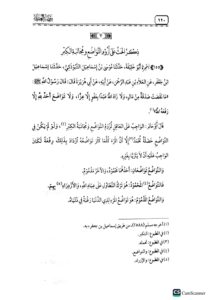 ١٢٠
ذكر الحث على لزوم التواضع ومجانبة الكبر
أخبرنا أبو خليفة، حدثنا موسى بن إسماعيل التبوذكي، حدثنا إسماعيل
بن جعفر، عن العلاء بن عبد الرحمن، عن أبيه، عن أبي هريرة قال: قال رسول الله ﷺ
«ما نقصت صدقة من مال، ولا زاد الله عبدا بعفو إلا عزا، ولا تواضع أحد لله إلا
رفعه الله»
قال أبو حاتم: الواجب على العاقل لزوم التواضع ومجانبة التكبر، ولو لم يكن في
التواضع خصلة تحمد إلا أن المرء كلما كثر تواضعه ازداد بذلك رفعة لكان
الواجب عليه أن لا يتزيا بغيره
والتواضع تواضعان: أحدهما محمود، والآخر مذموم
والتواضع المحمود: هو ترك التطاول على عباد الله، والإزراء بهم
والتواضع المذموم: هو تواضع المرء لذي الدنيا رغبة في دنياه
CamScanner